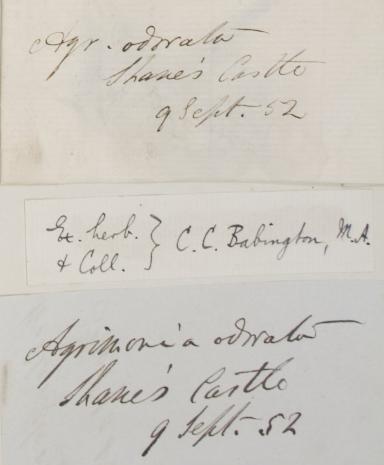 Agr. odorata
Shane's Castle
9 Sept. 52
Ex. herb. } C. C. Babington, M.A.
& Coll.
Agrimonia odorata
Shane's Castle
9 Sept. 52